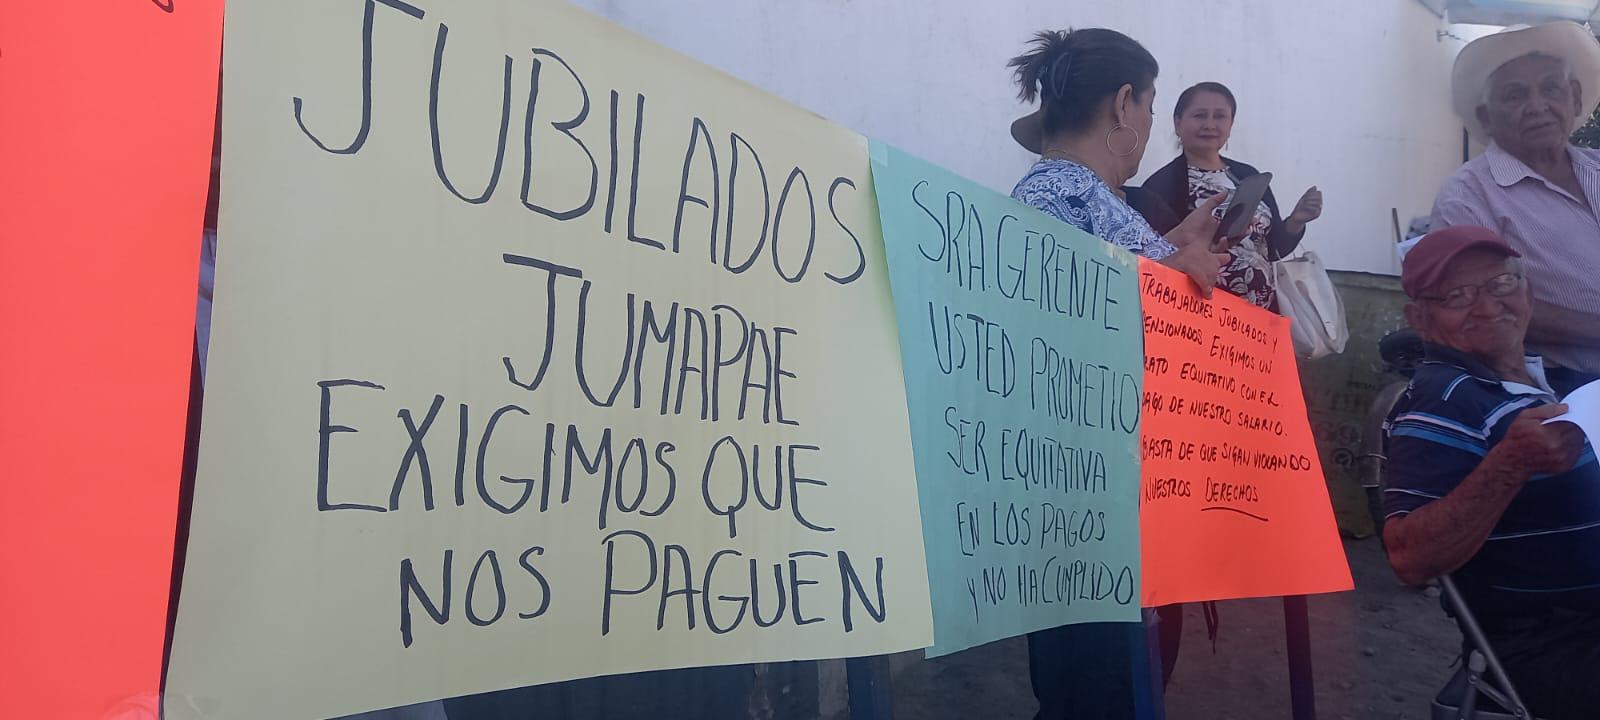 JUBILADOS
JUMAPAE
EXIGIMOS QUE
NOS PAGUEN
SRA. GERENTE
USTED PROMETIO
SER EQUITATIVA
EN LOS PAGOS
Y NO HA CUMPLIDO
TRABAJADORES JUBILADOS Y
PENSIONADOS EXIGIMOS UN
RATO EQUITATIVO CON EL
PAGO DE NUESTRO SALARIO.
BASTA DE QUE SIGAN VIOLANDO
NUESTROS DERECHOS